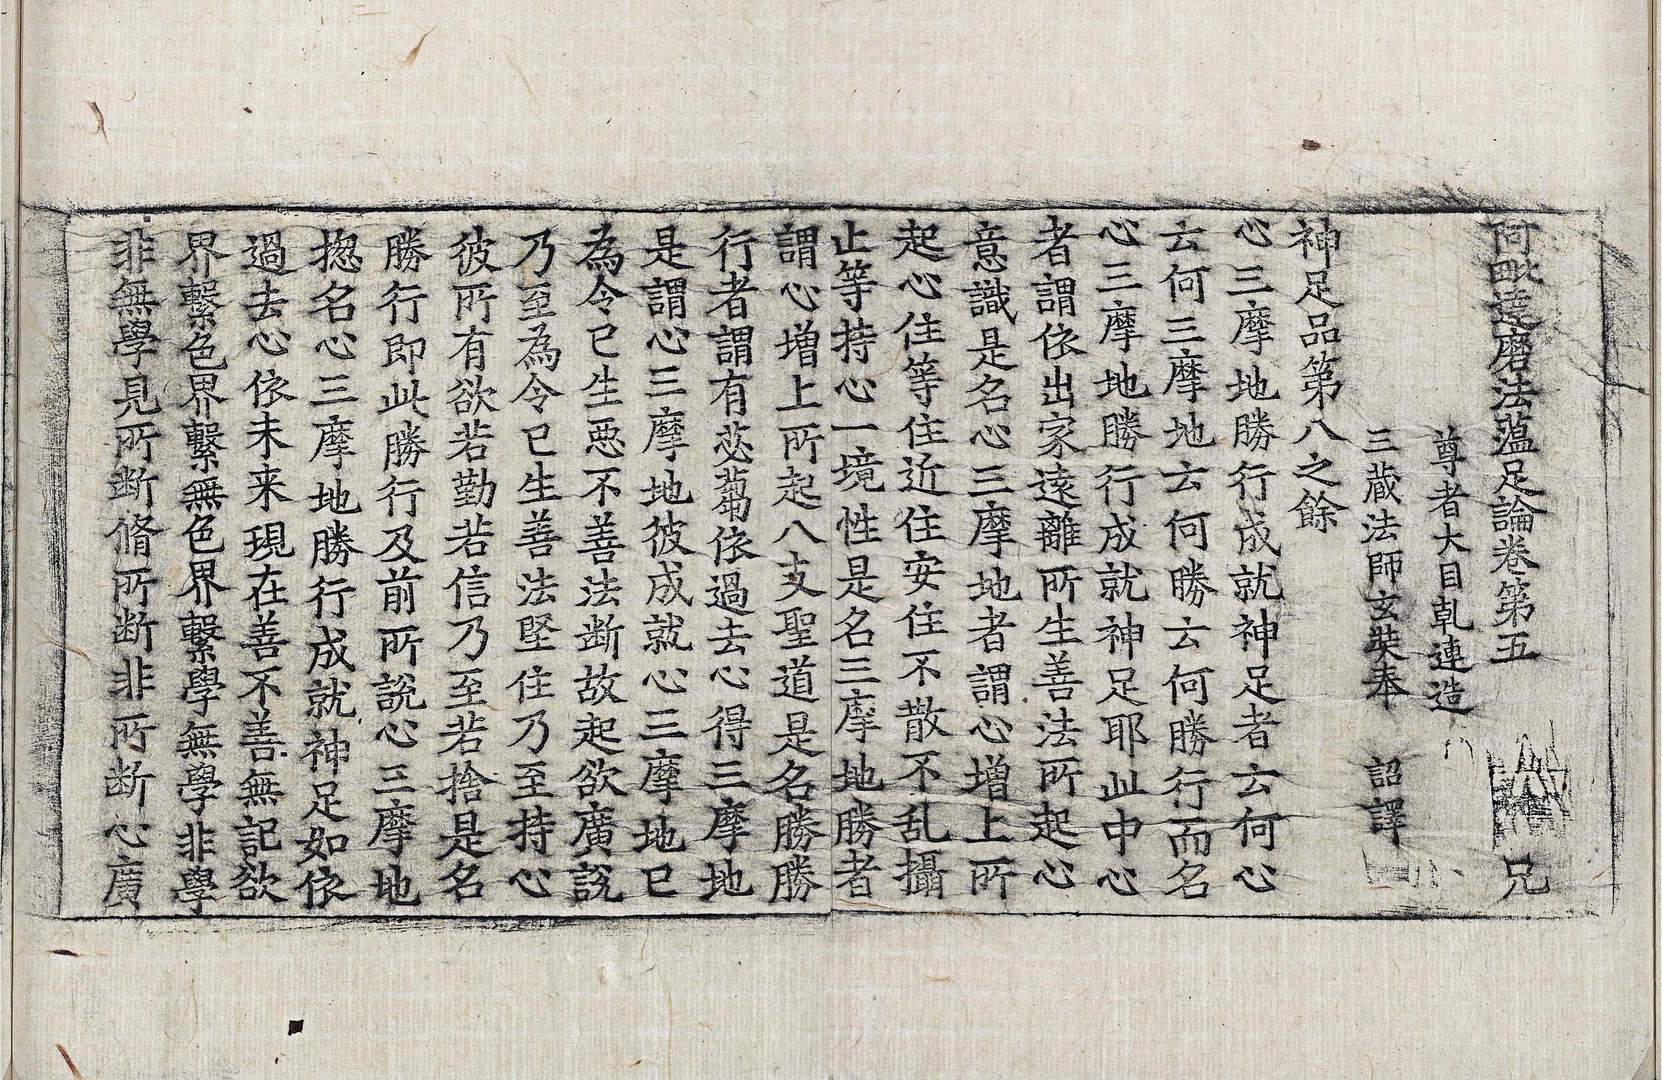 阿毗達磨法蘊足論卷第五 兄
尊者大目乹連造
三藏法師玄奘奉 詔譯
神足品第八之餘
心三摩地勝行成就神足者云何心
云何三摩地云何勝云何勝行而名
心三摩地勝行成就神足耶此中心
者謂依出家遠離所生善法所起心
意識是名心三摩地者謂心增上所
起心住等住近住安住不散不乱攝
止等持心一境性是名三摩地勝者
謂心增上所起八支聖道是名勝勝
行者謂有苾蒭依過去心得三摩地
是謂心三摩地彼成就心三摩地已
為令已生惡不善法斷故起欲廣說
乃至為令已生善法堅住乃至持心
彼所有欲若勤若信乃至若捨是名
勝行即此勝行及前所說心三摩地
揔名心三摩地勝行成就神足如依
過去心依未来現在善不善無記欲
界繫色界繫無色界繫學無學非學
非無學見所斷脩所斷非所斷心廣